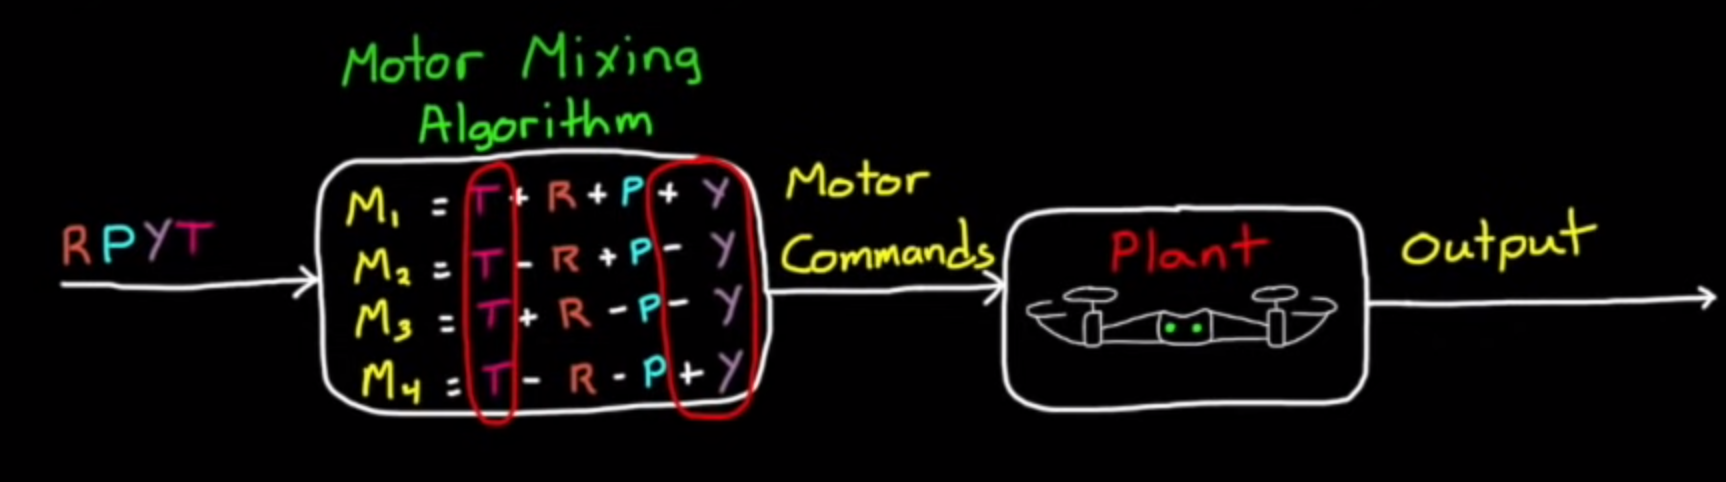 Motor Mixing
Algorithm
RPYT
M₁ = T + R + P + Y
M₂ = T - R + P - Y
M₃ = T + R - P - Y
M₄ = T - R - P + Y
Motor
Commands
Plant
Output